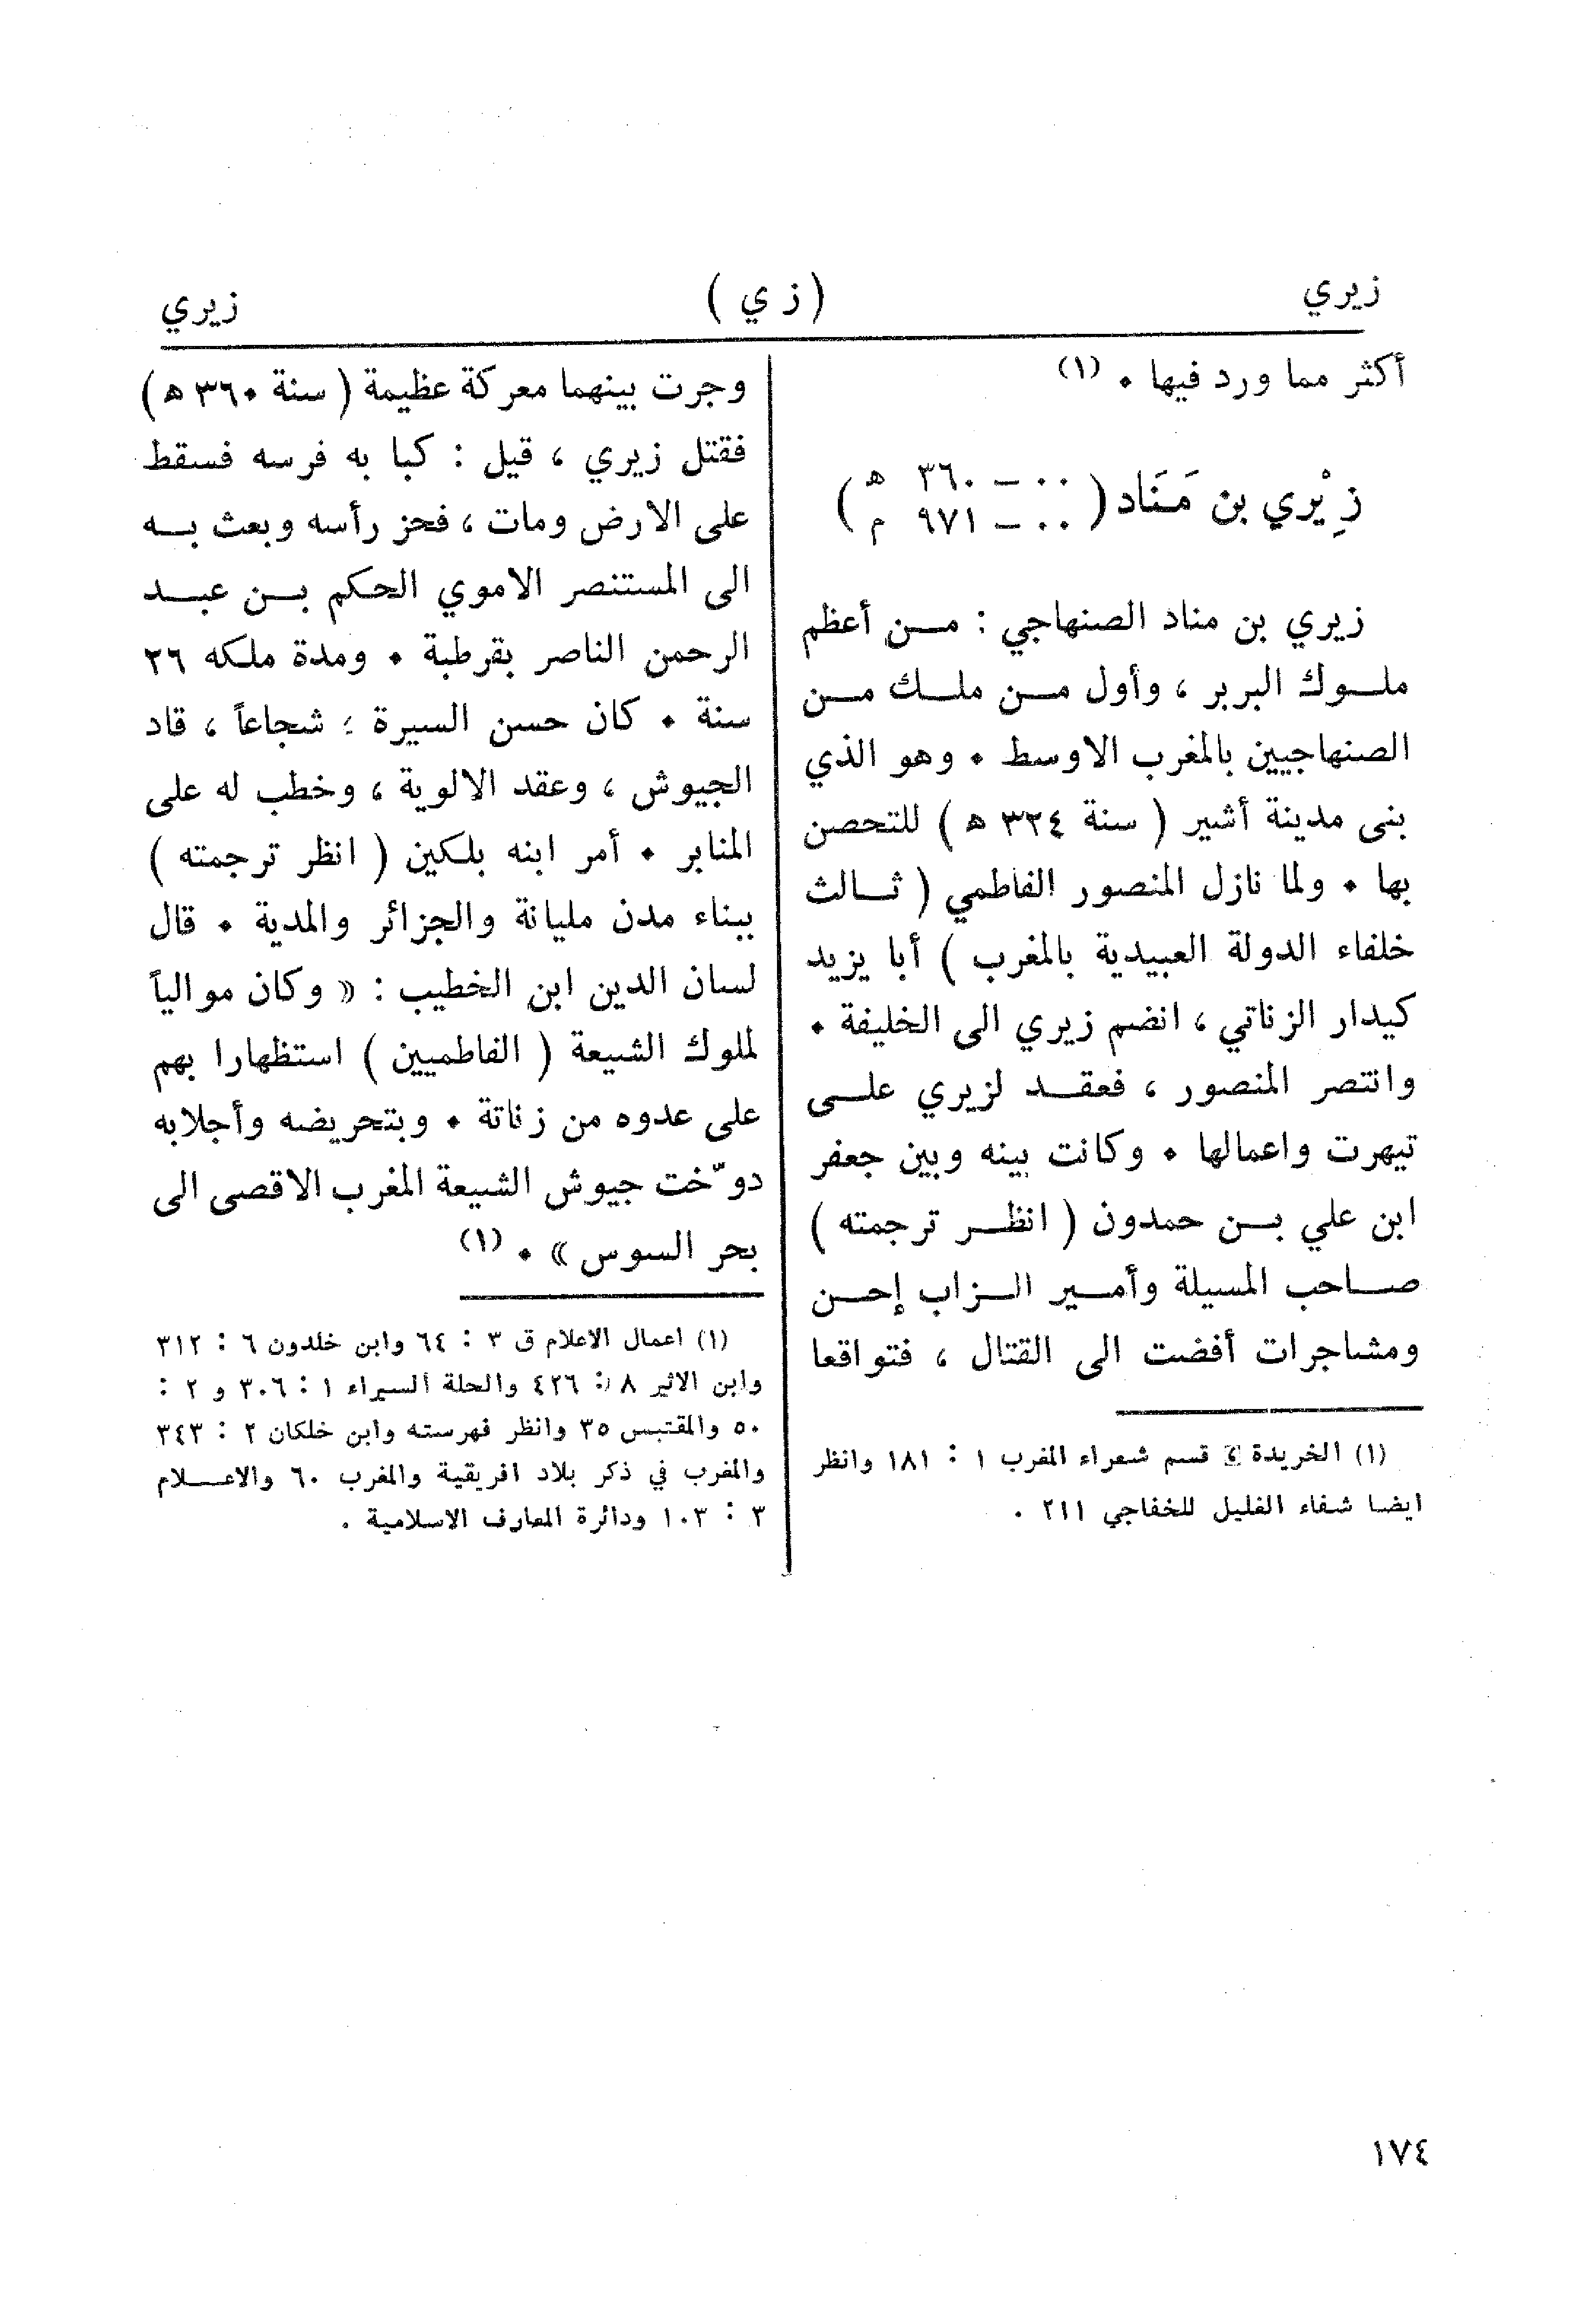 زيري
( ز ي )
زيري
أكثر مما ورد فيها ٠ (١)
زِيْري بن مَنَاد ( ٠٠ – ٣٦٠ ه
٠٠ – ٩٧١ م )
زيري بن مناد الصنهاجي : مـن أعظم
ملـوك البربر ، وأول مـن ملـك مـن
الصنهاجيين بالمغرب الاوسط ٠ وهو الذي
بنى مدينة أشير ( سنة ٣٢٤ ه ) للتحصن
بها ٠ ولما نازل المنصور الفاطمي ( ثـالث
خلفاء الدولة العبيدية بالمغرب ) أبا يزيد
كيدار الزناتي ، انضم زيري الى الخليفة ٠
وانتصر المنصور ، فعقـد لزيري علـى
تيهرت واعمالها ٠ وكانت بينه وبين جعفر
ابن علي بـن حمدون ( انظـر ترجمته )
صـاحب المسيلة وأمـير الـزاب إحـن
ومشاجرات أفضت الى القتال ، فتواقعا
(١) الخريدة ، قسم شعراء المغرب ١ : ١٨١ وانظر
ايضا شفاء الغليل للخفاجي ٢١١ .
وجرت بينهما معركة عظيمة ( سنة ٣٦٠ ه )
فقتل زيري ، قيل : كبا به فرسه فسقط
على الارض ومات ، فحز رأسه وبعث بـه
الى المستنصر الاموي الحكم بـن عبـد
الرحمن الناصر بقرطبة ٠ ومدة ملكه ٢٦
سنة ٠ كان حسن السيرة ؛ شجاعاً ، قاد
الجيوش ، وعقد الالوية ، وخطب له على
المنابر ٠ أمر ابنه بلكين ( انظر ترجمته )
ببناء مدن مليانة والجزائر والمدية ٠ قال
لسان الدين ابن الخطيب : « وكان موالياً
لملوك الشيعة ( الفاطميين ) استظهارا بهم
على عدوه من زناتة ٠ وبتحريضه وأجلابه
دوّخت جيوش الشيعة المغرب الاقصى الى
بحر السوس » ٠ (١)
(١) اعمال الاعلام ق ٣ : ٦٤ وابن خلدون ٦ : ٣١٢
وابن الاثير ٨ : ٤٢٦ والحلة السيراء ١ : ٣٠٦ و ٢ :
٥٠ والمقتبس ٣٥ وانظر فهرسته وابن خلكان ٢ : ٣٤٣
والمغرب في ذكر بلاد افريقية والمغرب ٦٠ والاعـلام
٣ : ١٠٣ ودائرة المعارف الاسلامية .
١٧٤